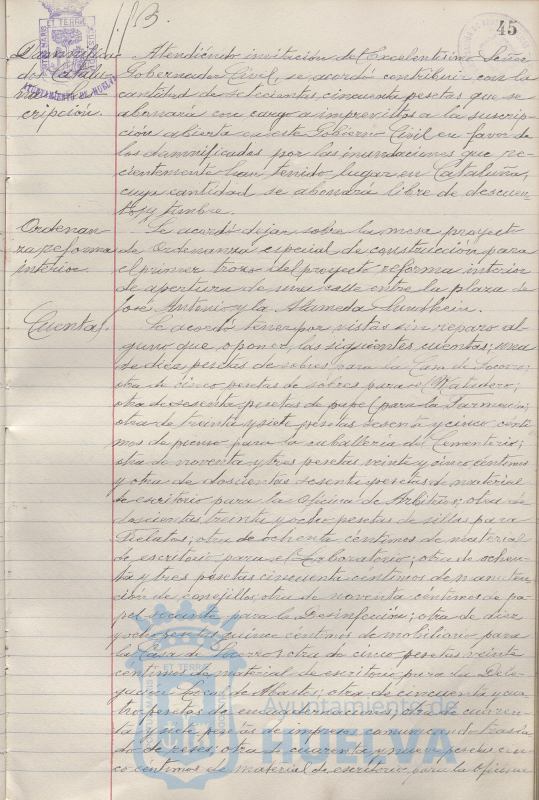 45
Damnifica-
dos Catalu-
ña
cripción.
Atendiendo invitación del Excelentísimo Señor
Gobernador Civil, se acordó contribuir con la
cantidad de setecientas cincuenta pesetas que se
abonará con cargo a imprevistos a la suscrip-
ción abierta en este Gobierno Civil en favor de
los damnificados por las inundaciones que re-
cientemente han tenido lugar en Cataluña,
cuya cantidad se abonará libre de descuen-
tos y timbre.
Ordenan-
za reforma
interior.
Se acordó dejar sobre la mesa proyecto
de Ordenanza especial de construcción para
el primer trozo del proyecto reforma interior
de apertura de una calle entre la plaza de
José Antonio y la Alameda Sundheim.
Cuentas.
Se acordó tener por vistas sin reparo al-
guno que oponer, las siguientes cuentas; una
de diez pesetas de sobres para la Casa de Socorro;
otra de cinco pesetas de sobres para el Matadero;
otra de sesenta pesetas de papel para la Farmacia;
otra de treinta y siete pesetas sesenta y cinco cénti-
mos de pienso para la caballería del Cementerio;
otra de noventa y tres pesetas veinte y cinco céntimos
y otra de doscientas sesenta pesetas de material
de escritorio para la Oficina de Arbitrios; otra de
doscientas treinta y ocho pesetas de sillas para
Fielatos; otra de ochenta céntimos de material
de escritorio para el Laboratorio; otra de ochen-
ta y tres pesetas cincuenta céntimos de manuten-
ción de conejillos; otra de noventa céntimos de pa-
pel secante para la Desinfección; otra de diez
y ocho pesetas quince céntimos de mobiliario para
la Casa de Socorro; otra de cinco pesetas veinte
céntimos de material de escritorio para la Dele-
gación Local de Abastos; otra de cincuenta y cua-
tro pesetas de encuadernaciones; otra de cuaren-
ta y siete pesetas de impresos comunicando trasla-
do de reses; otra de cuarenta y nueve pesetas cin-
co céntimos de material de escritorio para la Oficina
ET TERRÆ
AYUNTAMIENTO DE HUELVA
Ayuntamiento de
HUELVA